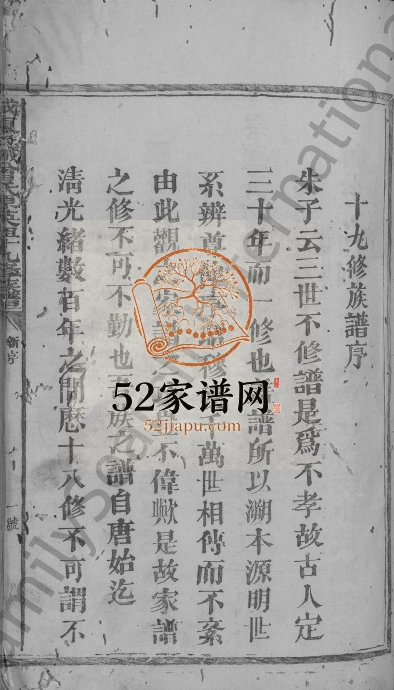 十九修族譜序
朱子云三世不修譜是爲不孝故古人定
三十年而一修也 譜所以溯本源明世
系辨尊 千萬世相傳而不紊
由此觀 不偉歟是故家譜
之修不可不勤也 族之譜自唐始迄
清光緒數百年之間歷十八修不可謂不
新序
一號
52家谱网
52jiapu.com